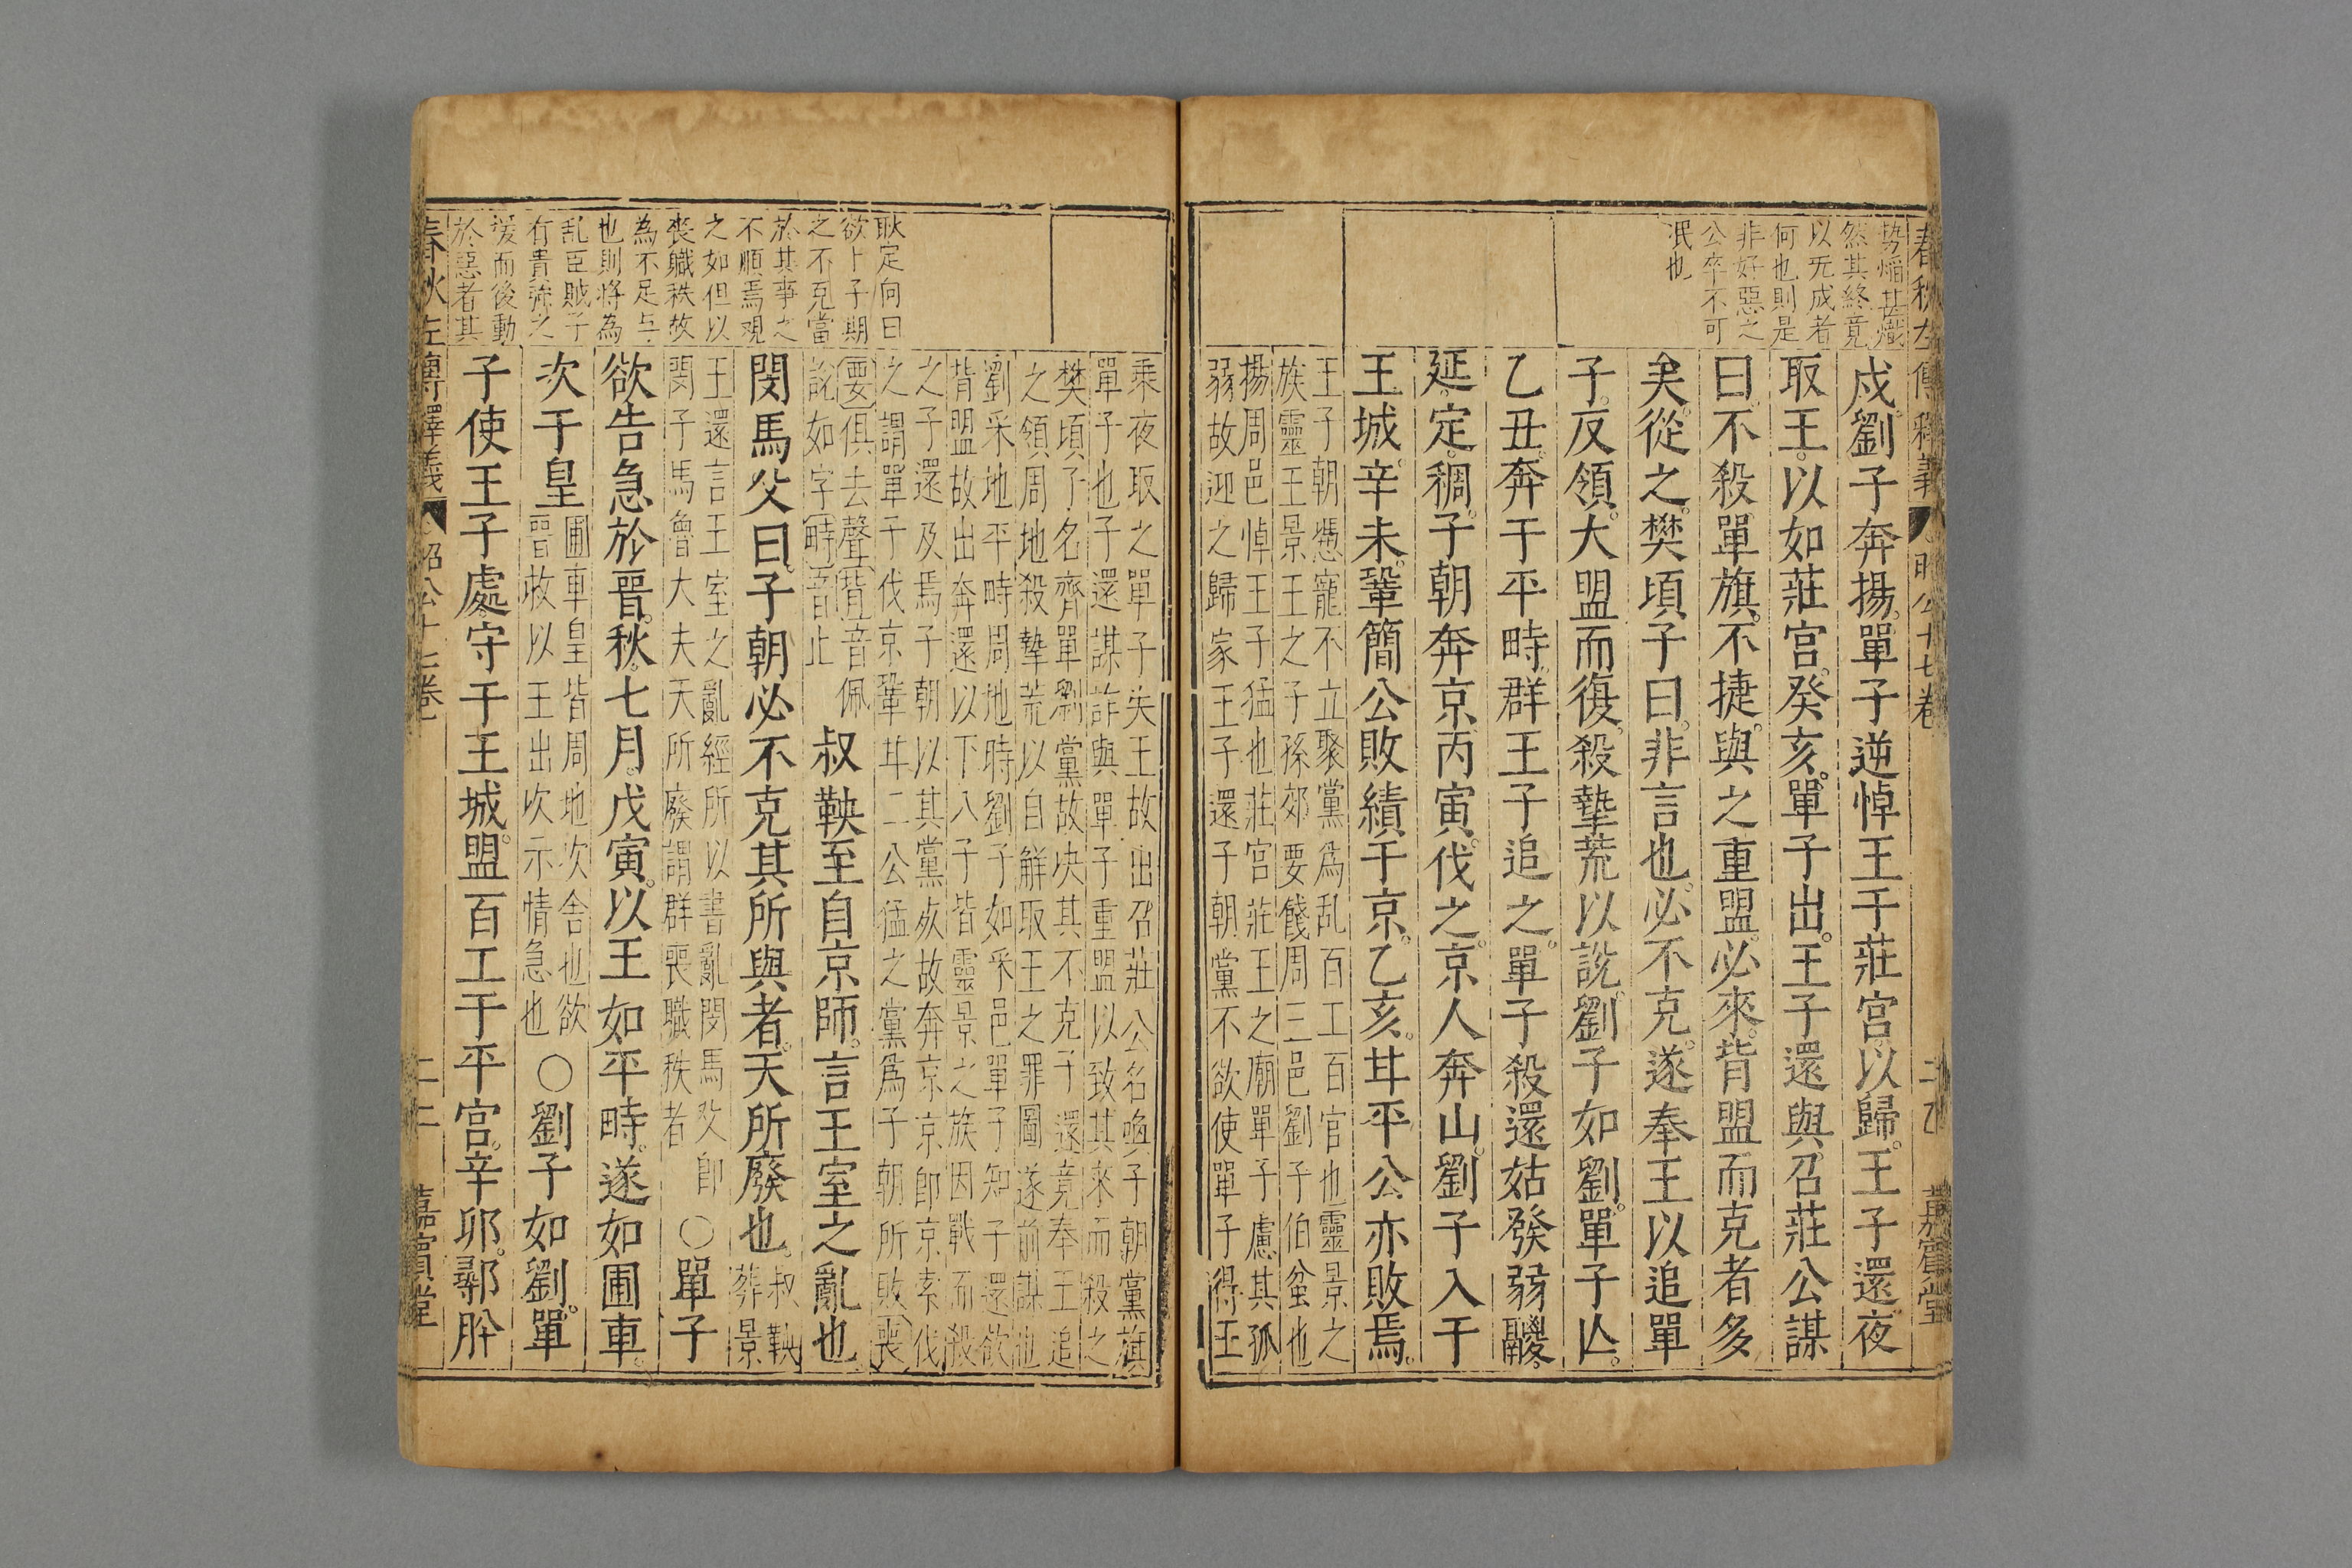 春秋左傳釋義
昭公十七卷
嘉賓堂
勢焰甚熾
然其終竟
以无成者
何也則是
非好惡之
公卒不可
泯也
戍劉子奔揚單子逆悼王于莊宮以歸王子還夜
取王以如莊宮癸亥單子出王子還與召莊公謀
曰不殺單旗不捷與之重盟必來背盟而克者多
矣從之樊頃子曰非言也必不克遂奉王以追單
子反領大盟而復殺摯荒以說劉子如劉單子亾
乙丑奔于平畤群王子追之單子殺還姑發弱鬷
延定稠子朝奔京丙寅伐之京人奔山劉子入于
王城辛未鞏簡公敗績于京乙亥甘平公亦敗焉
王子朝慿寵不立聚黨爲乱百工百官也靈景之
族靈王景王之子孫郊要餞周三邑劉子伯蚠也
揚周邑悼王子猛也莊宮莊王之廟單子慮其孤
弱故迎之歸家王子還子朝黨不欲使單子得王
乘夜取之單子失王故出召莊公名奐子朝黨旗
單子也子還謀詐與單子重盟以致其來而殺之
樊頃子名齊單劉黨故决其不克子還竟奉王追
之領周地殺摯荒以自觧取王之罪圖遂前謀也
劉采地平畤周地時劉子如采邑單子知子還欲
背盟故出奔還以下八子皆靈景之族因戰而殺
之子還及焉子朝以其黨死故奔京京卽京索伐
之謂單于伐京鞏甘二公猛之黨爲子朝所敗喪
要俱去聲背音佩
說如字畤音止
叔鞅至自京師言王室之亂也
閔馬父曰子朝必不克其所與者天所廢也
叔鞅
葬景
王還言王室之亂經所以書亂閔馬父卽
閔子馬魯大夫天所廢謂群喪職秩者
○單子
欲告急於晉秋七月戊寅以王如平畤遂如圃車
次于皇
圃車皇皆周地次舍也欲
晉救以王出次示情急也
○劉子如劉單
子使王子處守于王城盟百工于平宮辛卯鄩肸
耿定向曰
欲卜子期
之不克當
於其事之
不順焉覌
之如但以
喪軄秩故
為不足与
也則将為
乱臣賊子
有青弥之
援而後動
於惡者其
春秋左傳釋義
昭公十七卷
二十二
嘉賓堂